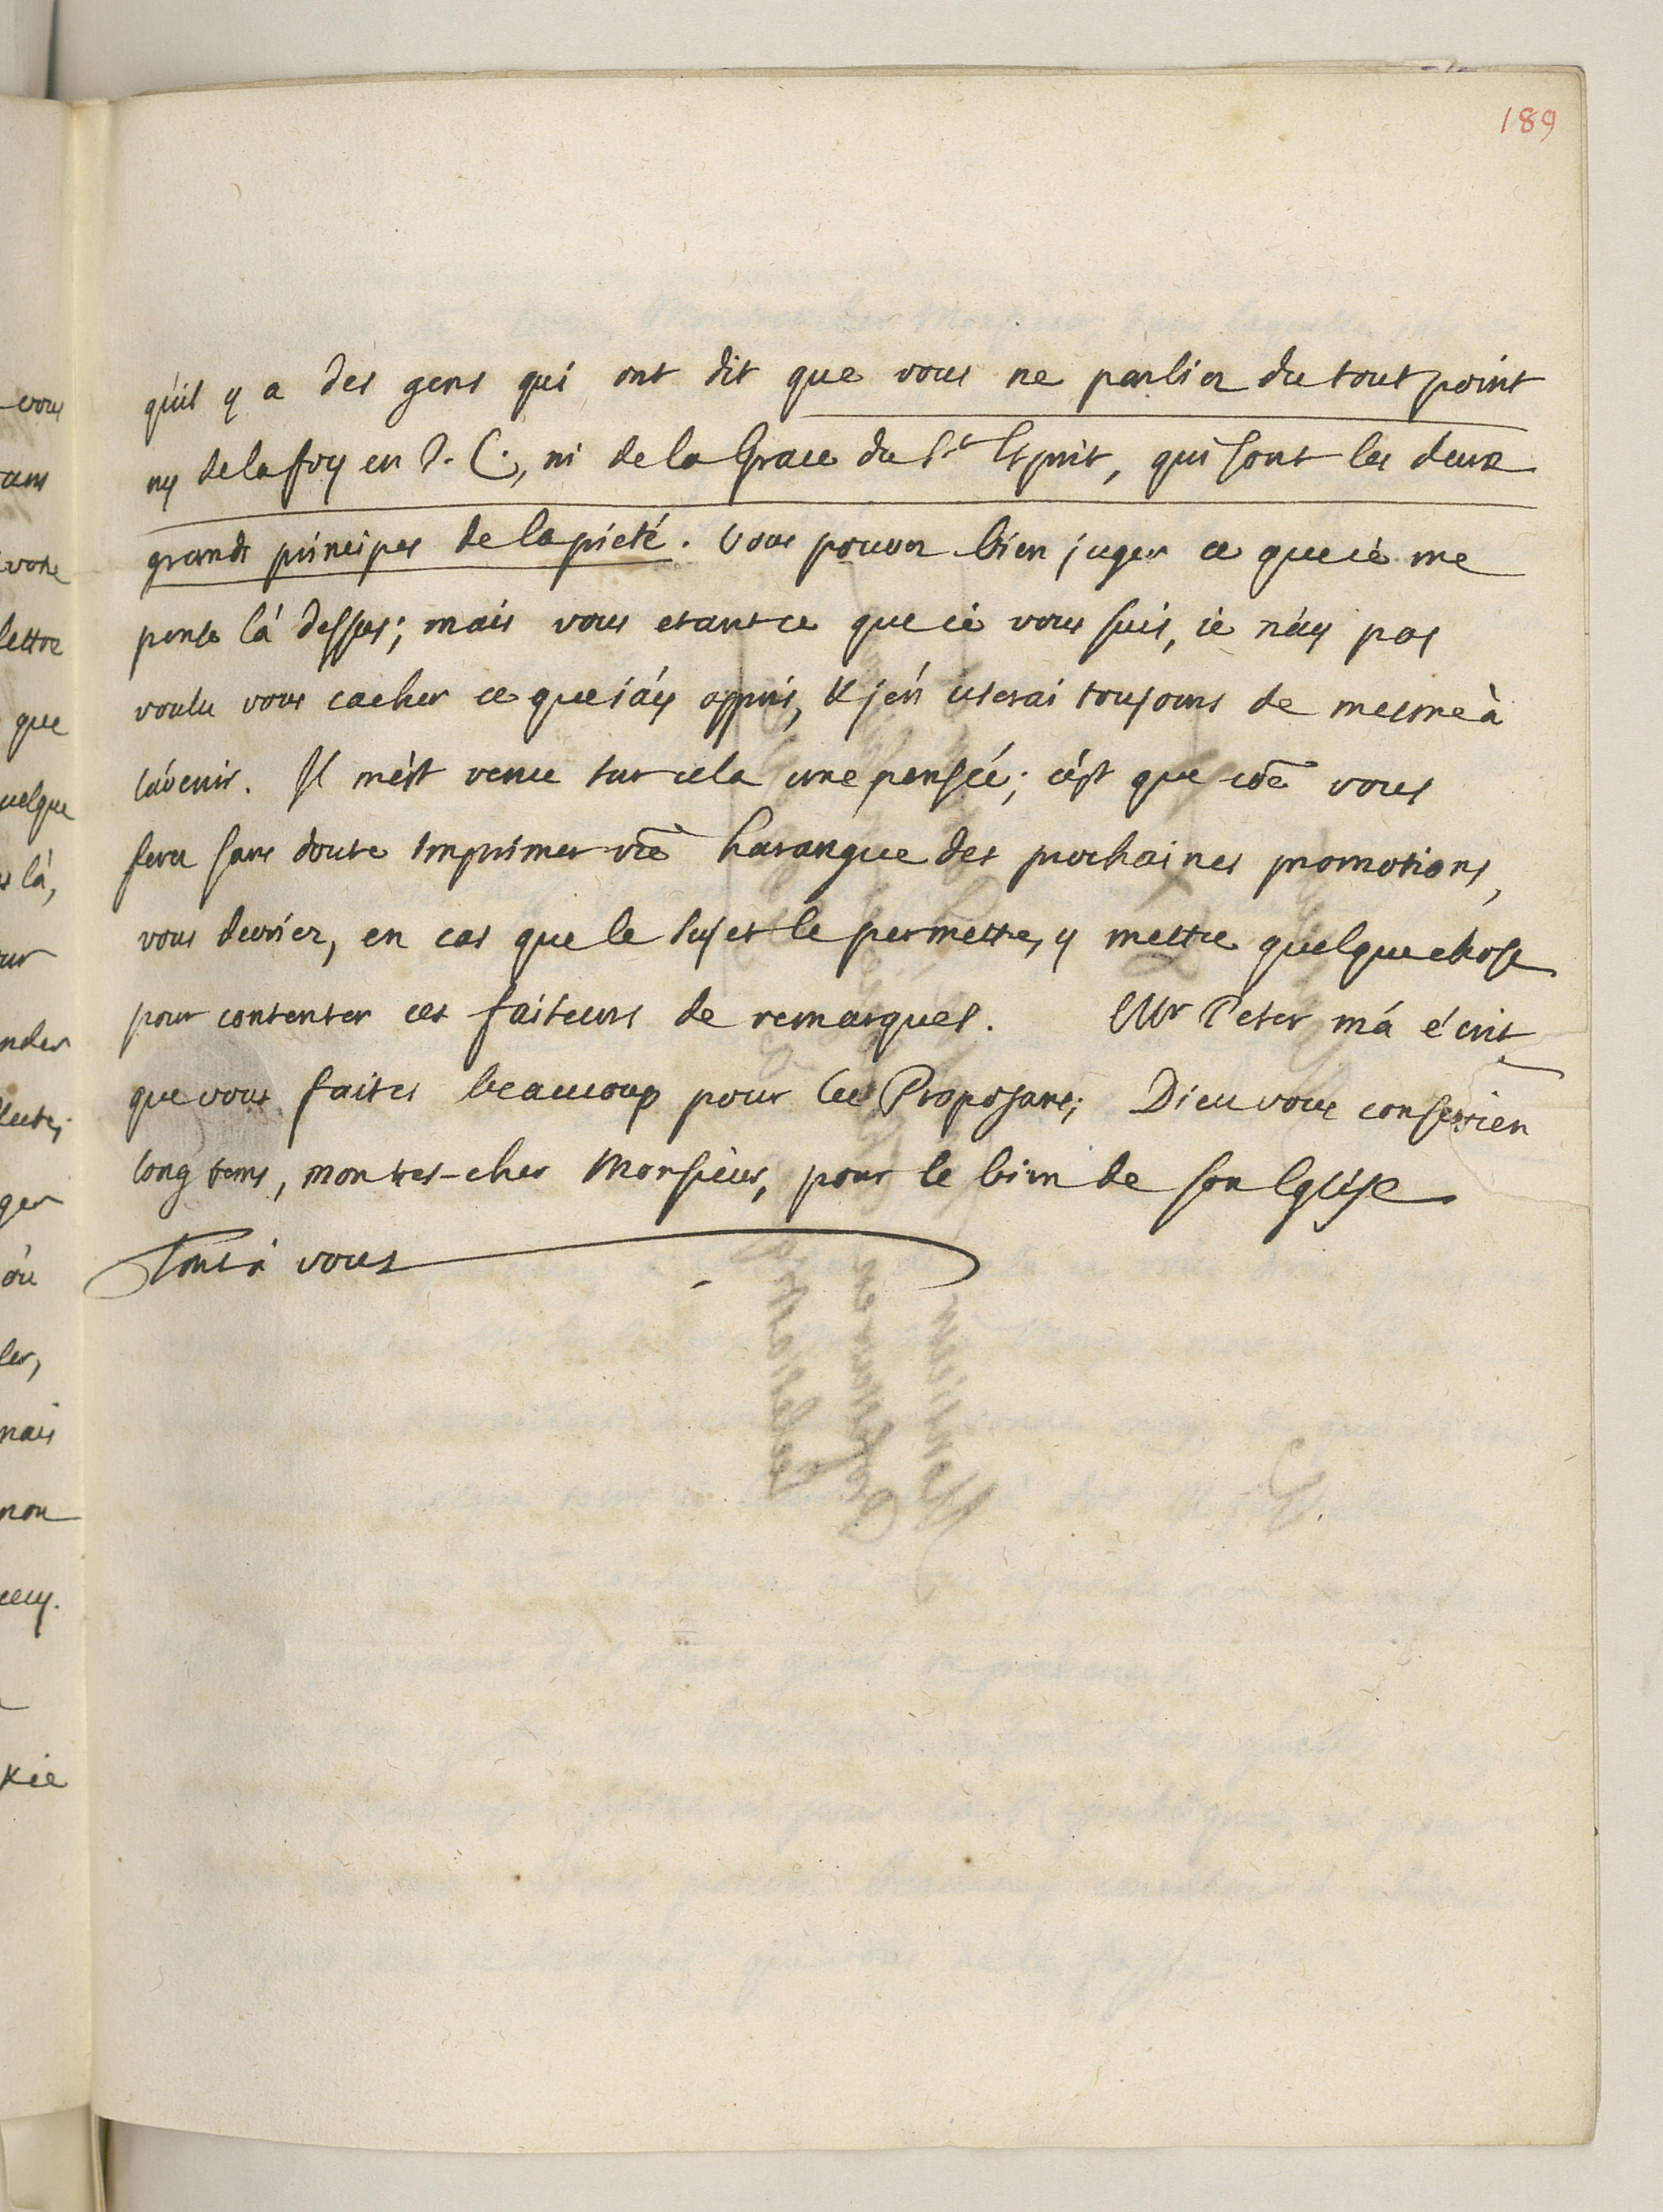 189
qu'il y a des gens qui ont dit que vous ne parliez du tout point
ny de la foy en J. C., ni de la Grace du St Esprit, qui sont les deux
grands principes de la pieté. Vous pouvez bien juger ce que ie me
pense là dessus; mais vous etant ce que ie vous suis, ie n'ay pas
voulu vous cacher ce que i'ay appris, & j'en userai toujours de mesme à
l'avenir. Il m'est venu sur cela une pensée; c'est que cõe vous
ferez sans doute imprimer vr̃e harangue des prochaines promotions,
vous devriez, en cas que le sujet le permette, y mettre quelque chose
pour contenter ces faiseurs de remarques. Mr Peter m'a écrit
que vous faites beaucoup pour les Proposans; Dieu vous conserve bien
long tems, mon tres-cher Monsieur, pour le bien de son Eglise.
Tout à vous
vous
votre
lettre
que
uelque
là,
ur
nder
ger
où
ler,
mais
non